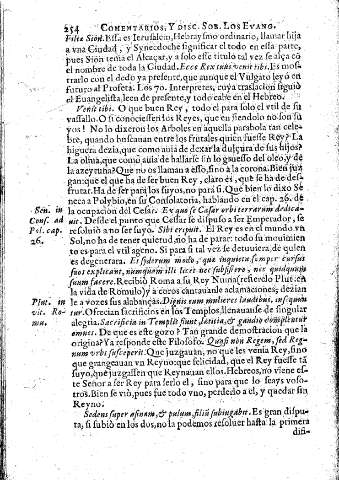 254 COMENTARIOS, Y DISC. SOB. LOS EVANG.
Filia Sion. Essa es Ierusalem, Hebraysmo ordinario, llamar hija
a vna Ciudad, y Synecdoche significar el todo en essa parte,
pues Sion tenia el Alcaçar, y a solo esse titulo tal vez se alça cõ
el nombre de toda la Ciudad. Ecce Rex tuus venit tibi. Es mos-
trarlo con el dedo ya presente, que aunque el Vulgato leyó en
futuro al Profeta. Los 70. Interpretes, cuya traslacion siguiò
el Euangelista, leen de presente, y todo cabe en el Hebreo.
Venit tibi. O que buen Rey, todo èl para solo el vtil de su
vassallo. O si conociessen los Reyes, que en siendolo no son su-
yos! No lo dizeron los Arboles en aquella parabola tan cele-
bre, quando buscauan entre los frutales quien fuesse Rey? La
higuera dezia, que como auia de dexar la dulçura de sus hijos?
La oliua, que como auia de hallarse sin lo gruesso del oleo, y de
la azeytuna? Que no os llaman a esso, sino à la corona. Bien juz-
gan: que el que ha de ser buen Rey, claro és, que se ha de des-
frutar. Ha de ser para los suyos, no para si. Que bien lo dixo Se
neca a Polybio, en su Consolatoria, hablando en el cap. 26. de
Sen. in la ocupacion del Cesar. Ex quo se Cæsar orbi terrarum dedica-
Cons. ad uit. Desde el punto que Cesar se dispuso a ser Emperador, se
Pol. cap. resoluiò a no ser suyo. Sibi eripuit. El Rey es en el mundo vn
26. Sol, no ha de tener quietud, no ha de parar: todo su mouimien
to es para el vtil ageno. Si para si tal vez se detuuiera, de quien
es degenerara. Et siderum modo, quæ inquieta semper cursus
suos explicant, numquam illi licet nec subsistere, nec quidquam
suum facere. Recibiò Roma a su Rey Numa (credo Plut. en
la vida de Romulo) y a coros cantauanle aclamaciones; dezian
Plut. in le a vozes sus alabanças. Dignis eum mulieres laudibus, susquam
vit. Ro- tur. Ofrecian sacrificios en los Templos, llenauanse de singular
mu. alegria. Sacrificia in Templis fiunt, lætitia, & gaudio complentur
omnes. De que es este gozo? Tan grande demostracion que la
origina? Ya responde este Filosofo. Quasi non Regem, sed Reg-
num vrbs susceperit. Que juzgauan, no que les venia Rey, sino
que grangeauan vn Reyno: que felicidad, que el Rey fuesse tã
suyo, que juzgassen que Reynauan ellos. Hebreos, no viene es-
te Señor a ser Rey para serlo el, sino para que lo seays voso-
tros. Bien se viò, pues fue todo vno, perderlo a èl, y quedar sin
Reyno.
Sedens super asinam, & pulum filiũ subiugalis. Es gran dispu-
ta, si subiò en los dos, no la podemos resoluer hasta la primera
difi-